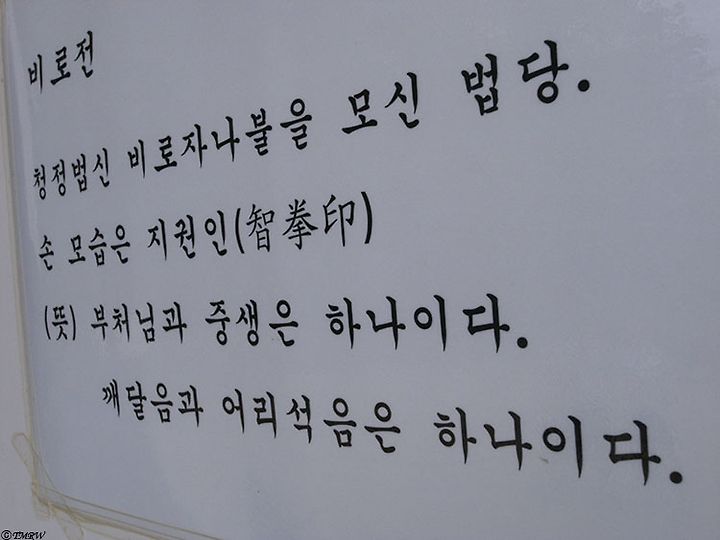 비로전
청정법신 비로자나불을 모신 법당.
손 모습은 지권인(智拳印)
(뜻) 부처님과 중생은 하나이다.
깨달음과 어리석음은 하나이다.
© TMRW